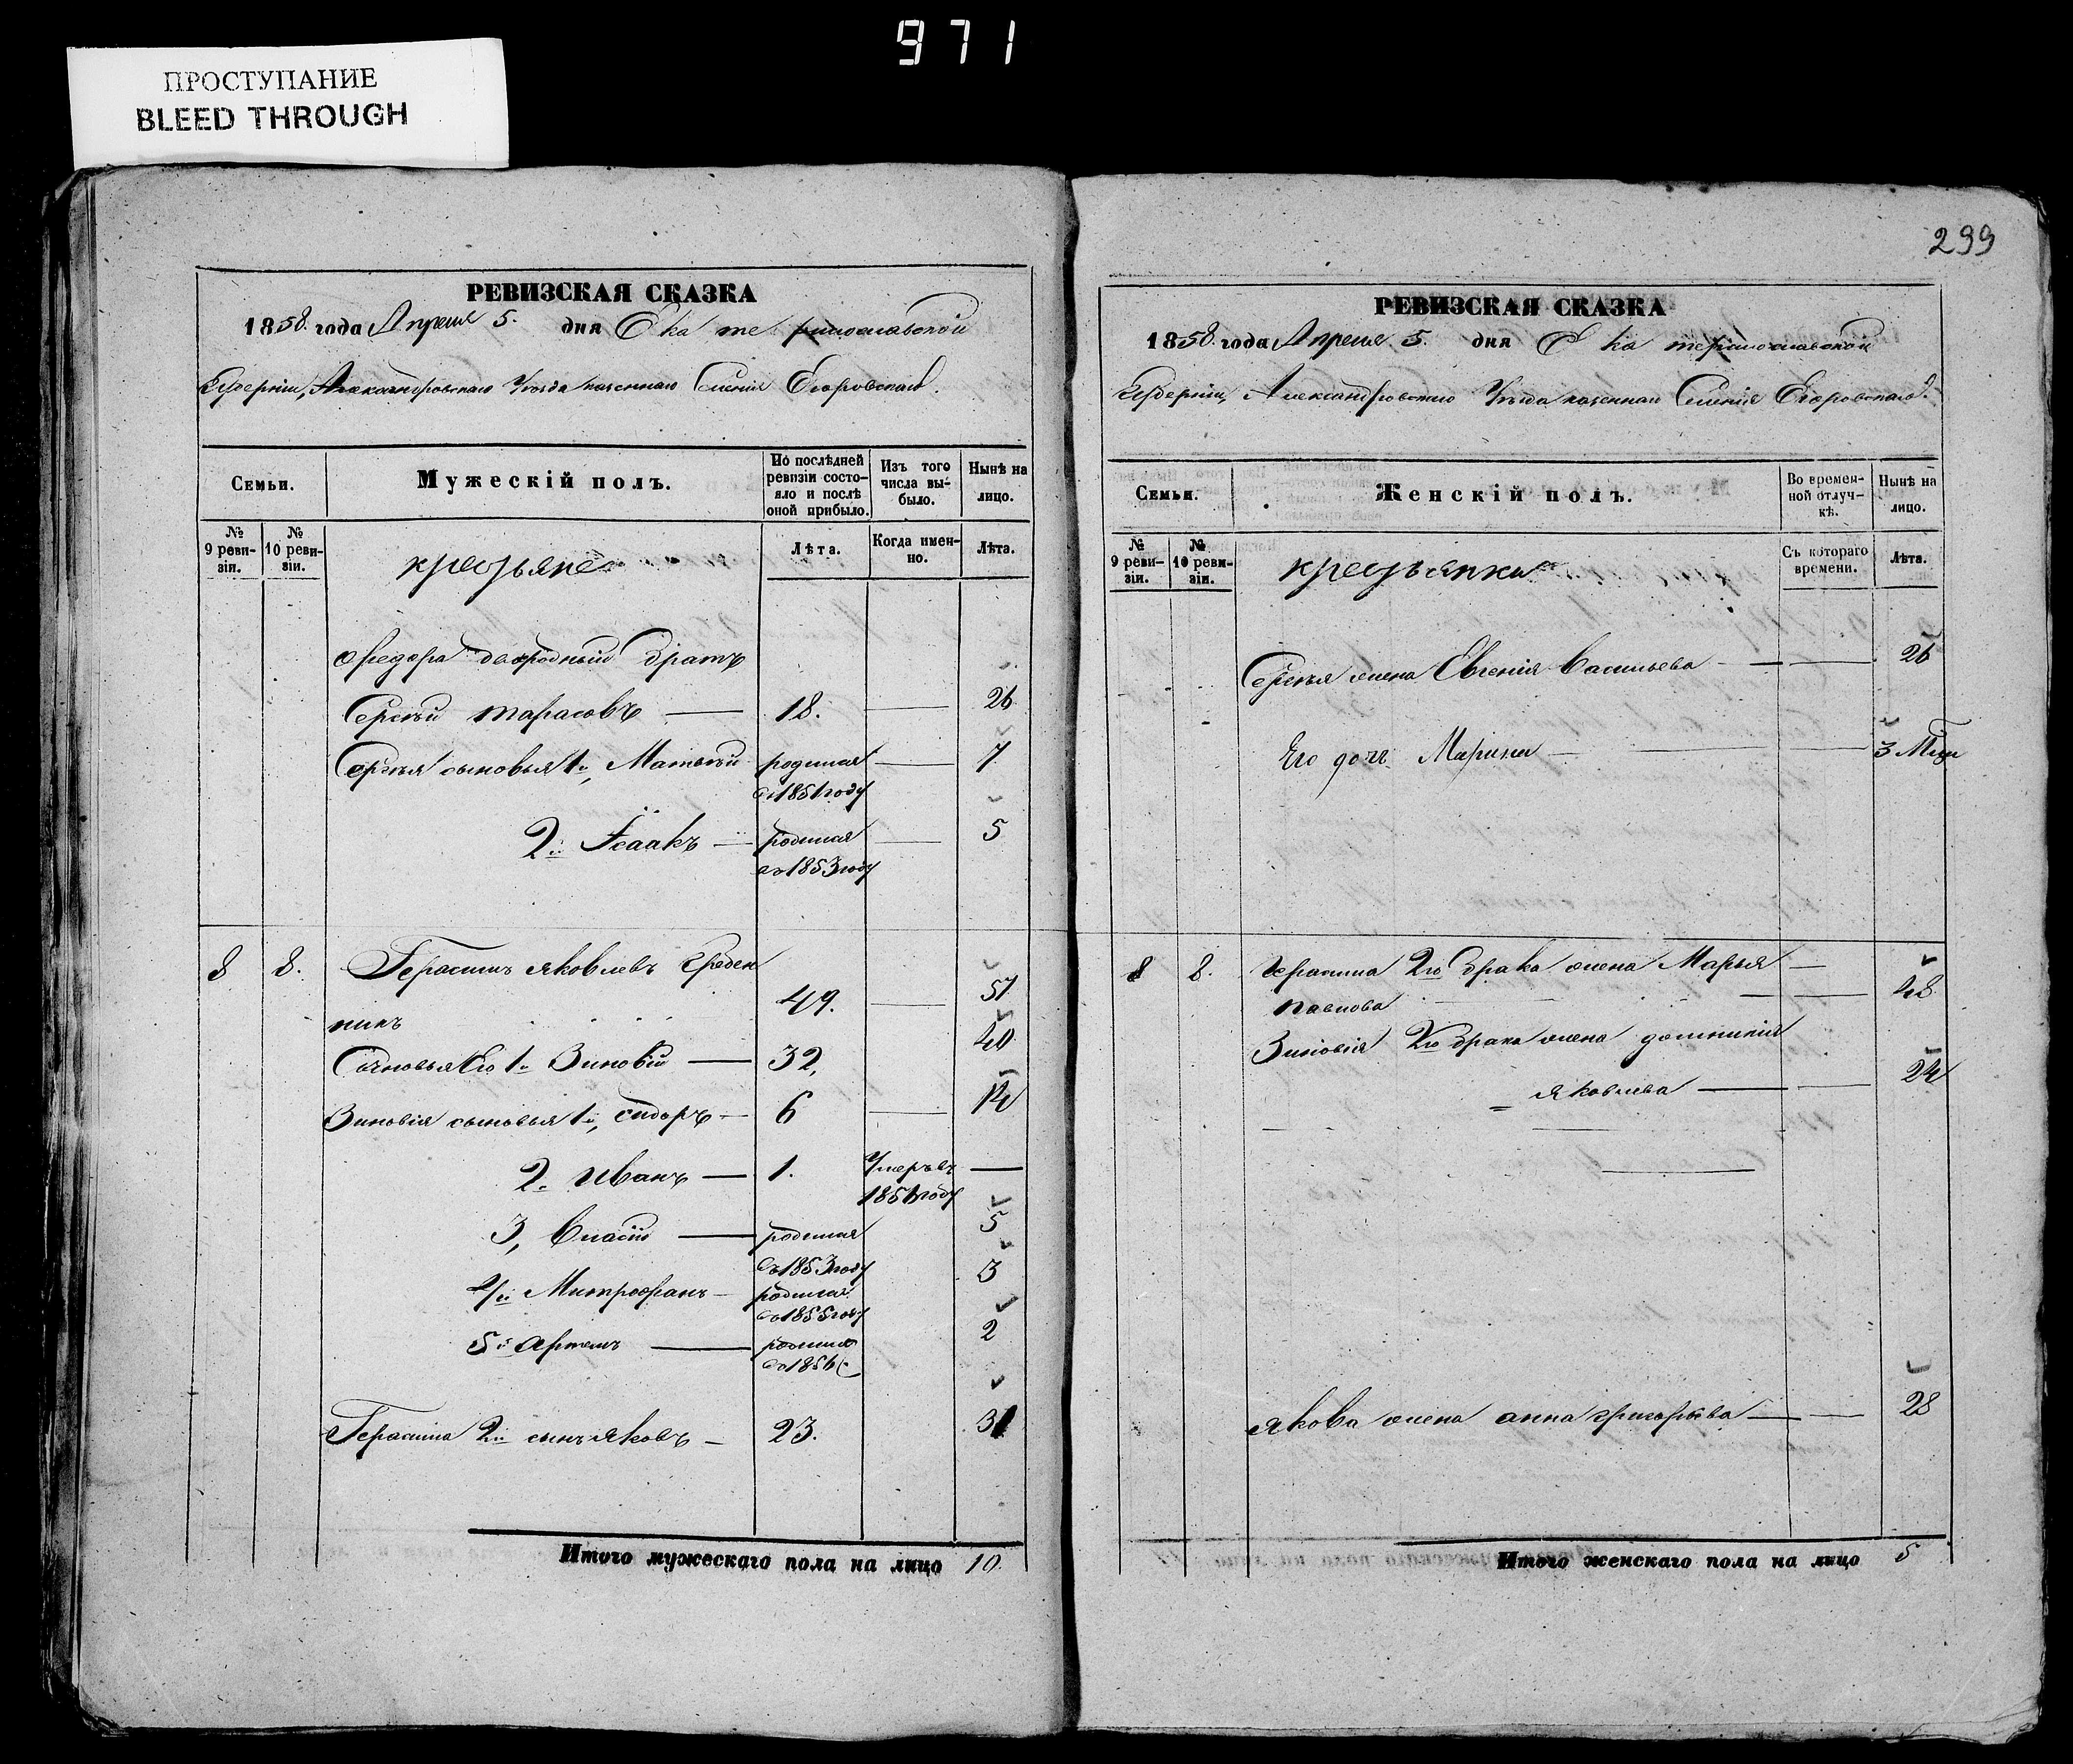 971
ПРОСТУПАНИЕ
BLEED THROUGH
РЕВИЗСКАЯ СКАЗКА
1858. года Апреля 5. дня Екатеринославской
Губерніи, Александровскаго Уѣзда казеннаго Селенія Егоровскаго.
Семьи.
Мужескій полъ.
По послѣдней ревизіи состояло и послѣ оной прибыло.
Изъ того числа выбыло.
Нынѣ на лицо.
№ 9 ревизіи.
№ 10 ревизіи.
крестьяне
Лѣта.
Когда именно.
Лѣта.
Федора двородный братъ
Сергѣй Тарасовъ — 18. — 26
Сергѣя сыновья 1й, Матвѣй родился — 7
съ 1851 году
2й Їсаакъ — родился — 5
въ 1853 году
8 8. Герасимъ Яковлевъ Среден
никъ 49. — 57
Сыновья Его 1й Зиновій — 32, 40
Зиновія сыновья 1й, Сидоръ — 6 — 14
2й Иванъ — 1. Умеръ въ —
1851 году
3, Власій — родился 5
въ 1853 году
4й Митрофанъ — родился 3
въ 1855 году
5й Артемъ — родился 2
въ 1856
Герасима 2й сынъ Яковъ — 23. 31
Итого мужескаго пола на лицо 10.
299
РЕВИЗСКАЯ СКАЗКА
1858. года Апреля 5. дня Екатеринославской
Губерніи, Александровскаго Уѣзда казеннаго Селенія Егоровскаго.
Семьи.
Женскій полъ.
Во временной отлучкѣ.
Нынѣ на лицо.
№ 9 ревизіи.
№ 10 ревизіи.
крестьянки
Съ котораго времени.
Лѣта.
Сергѣя жена Евгенія Васильева — — 26
Его дочь Марина — — 3 Мѣся
8 8. Герасима 2го брака жена Марья —
Павлова — — 48
Зиновія 2го брака жена домникія
Яковлева — — 24
Якова жена анна григорьева — — 28
Итого женскаго пола на лицо 5